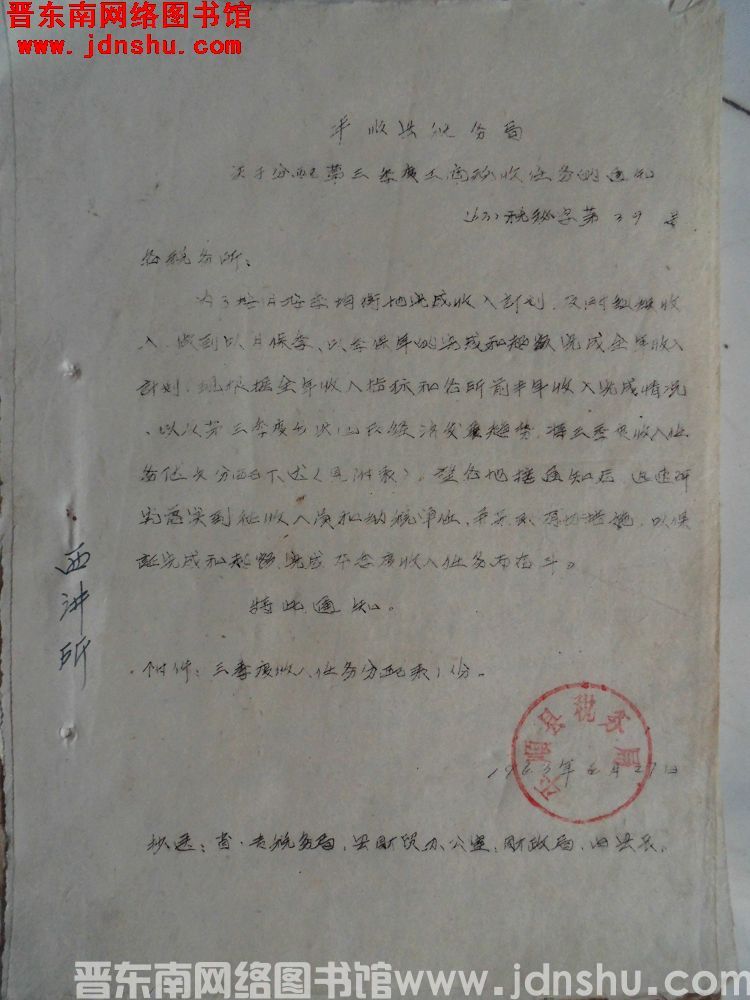 晋东南网络图书馆
www.jdnshu.com
平顺县税务局
关于分配第三季度工商税收任务的通知
(63)税秘字第39号
各税务所：
为了按月按季均衡地完成收入计划，及时组织收
入，做到以月保季、以季保年的完成和超额完成全年收入
計划，现根据全年收入指标和各所前半年收入完成情况
，以及第三季度
经济发展趋势，将三季度收入任
务分配下达（見附表）。望各地接通知后，迅速研
究落实到征收人员和纳税单位，并采取得力措施，以保
証完成和超额完成本季度收入任务而奋斗。
特此通知。
附件：三季度收入任务分配表1份。
平顺县税务局
1963年6月27日
抄送：省、专税务局，县财贸办公室，财政局，县长。
西沟所
晋东南网络图书馆www.jdnshu.com